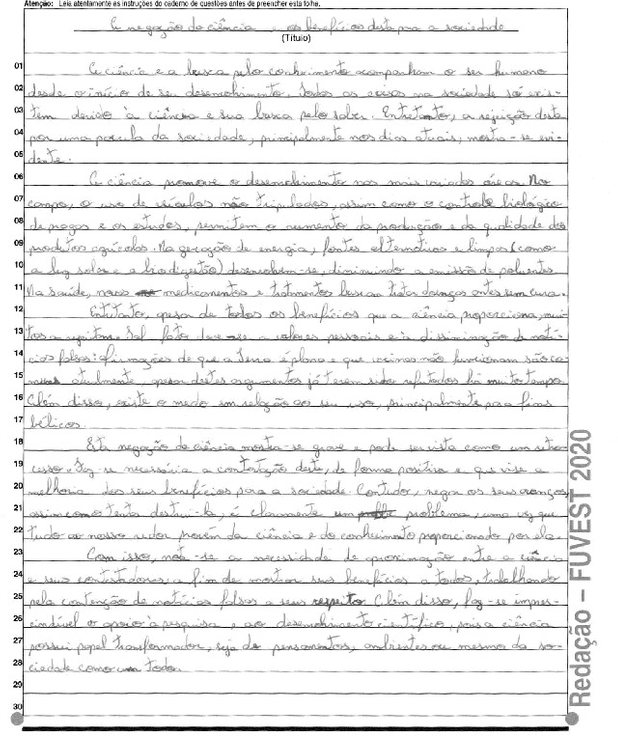 Atenção: Leia atentamente as instruções do caderno de questões antes de preencher esta folha.
A negação da ciência e os benefícios desta para a sociedade
(Título)
01 A ciência e a busca pelo conhecimento acompanham o ser humano
02 desde o início de seu desenvolvimento. Todas as coisas na sociedade só exis-
03 tem devido à ciência e sua busca pelo saber. Entretanto, a rejeição desta
04 por uma parcela da sociedade, principalmente nos dias atuais, mostra-se evi-
05 dente.
06 A ciência promove o desenvolvimento nas mais variadas áreas. No
07 campo, o uso de veículos não tripulados, assim como o controle biológico
08 de pragas e os estudos, permitem o aumento da produção e da qualidade dos
09 produtos agrícolas. Na geração de energia, fontes alternativas e limpas (como
10 a luz solar e a biodigestão) desenvolvem-se, diminuindo a emissão de poluentes.
11 Na saúde, novos medicamentos e tratamentos buscam tratar doenças antes sem cura.
12 Entretanto, apesar de todos os benefícios que a ciência proporciona, mui-
13 tos a rejeitam. Tal fato deve-se a valores pessoais e à disseminação de notí-
14 cias falsas: afirmações de que a terra é plana e que vacinas não funcionam são co-
15 muns atualmente, apesar destes argumentos já terem sido refutados há muito tempo.
16 Além disso, existe o medo em relação ao seu uso, principalmente para fins
17 bélicos.
18 Esta negação da ciência mostra-se grave e pode ser vista como um retro-
19 cesso. Faz-se necessária a contestação desta, de forma positiva e que vise a
20 melhoria dos seus benefícios para a sociedade. Contudo, negar os seus avanços,
21 assim como tentar destruí-la, é claramente um problema, uma vez que
22 tudo ao nosso redor provém da ciência e do conhecimento proporcionado por ela.
23 Com isso, nota-se a necessidade de aproximação entre a ciência
24 e seus contestadores, a fim de mostrar seus benefícios a todos, trabalhando
25 pela contenção de notícias falsas a seu respeito. Além disso, faz-se impres-
26 cindível o apoio à pesquisa e ao desenvolvimento científico, pois a ciência
27 possui papel transformador, seja de pensamentos, ambientes ou mesmo da so-
28 ciedade como um todo.
29
30
Redação – FUVEST 2020